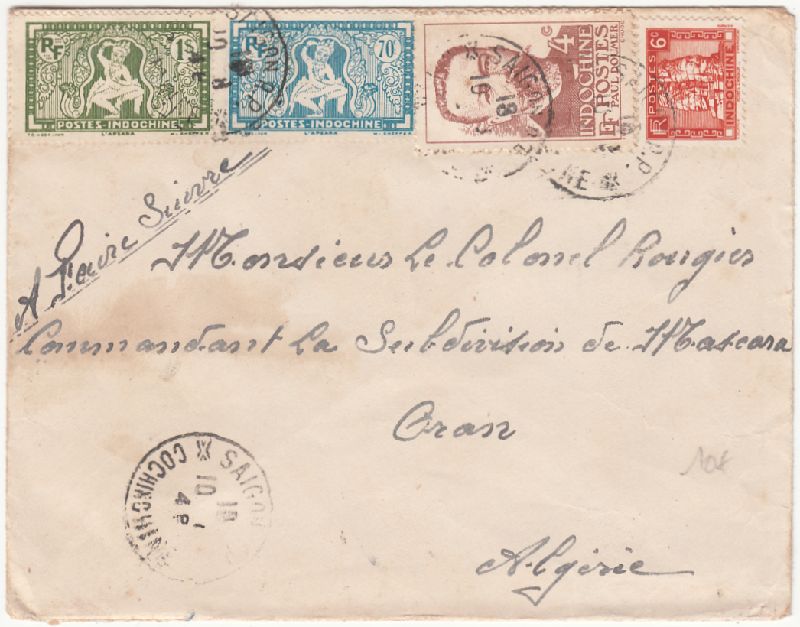 RF 1$
POSTES-INDOCHINE
L'APSARA
RF 70c
POSTES-INDOCHINE
L'APSARA
4c
INDOCHINE
POSTES
PAUL DOUMER
RF
6c
POSTES
INDOCHINE
RF
SAIGON R.P.
SAIGON
18
10
A Faire Suivre
Monsieur Le Colonel Rougier
Commandant La Subdivision de Mascara
Oran
Algérie
SAIGON
COCHINCHINE
18
10